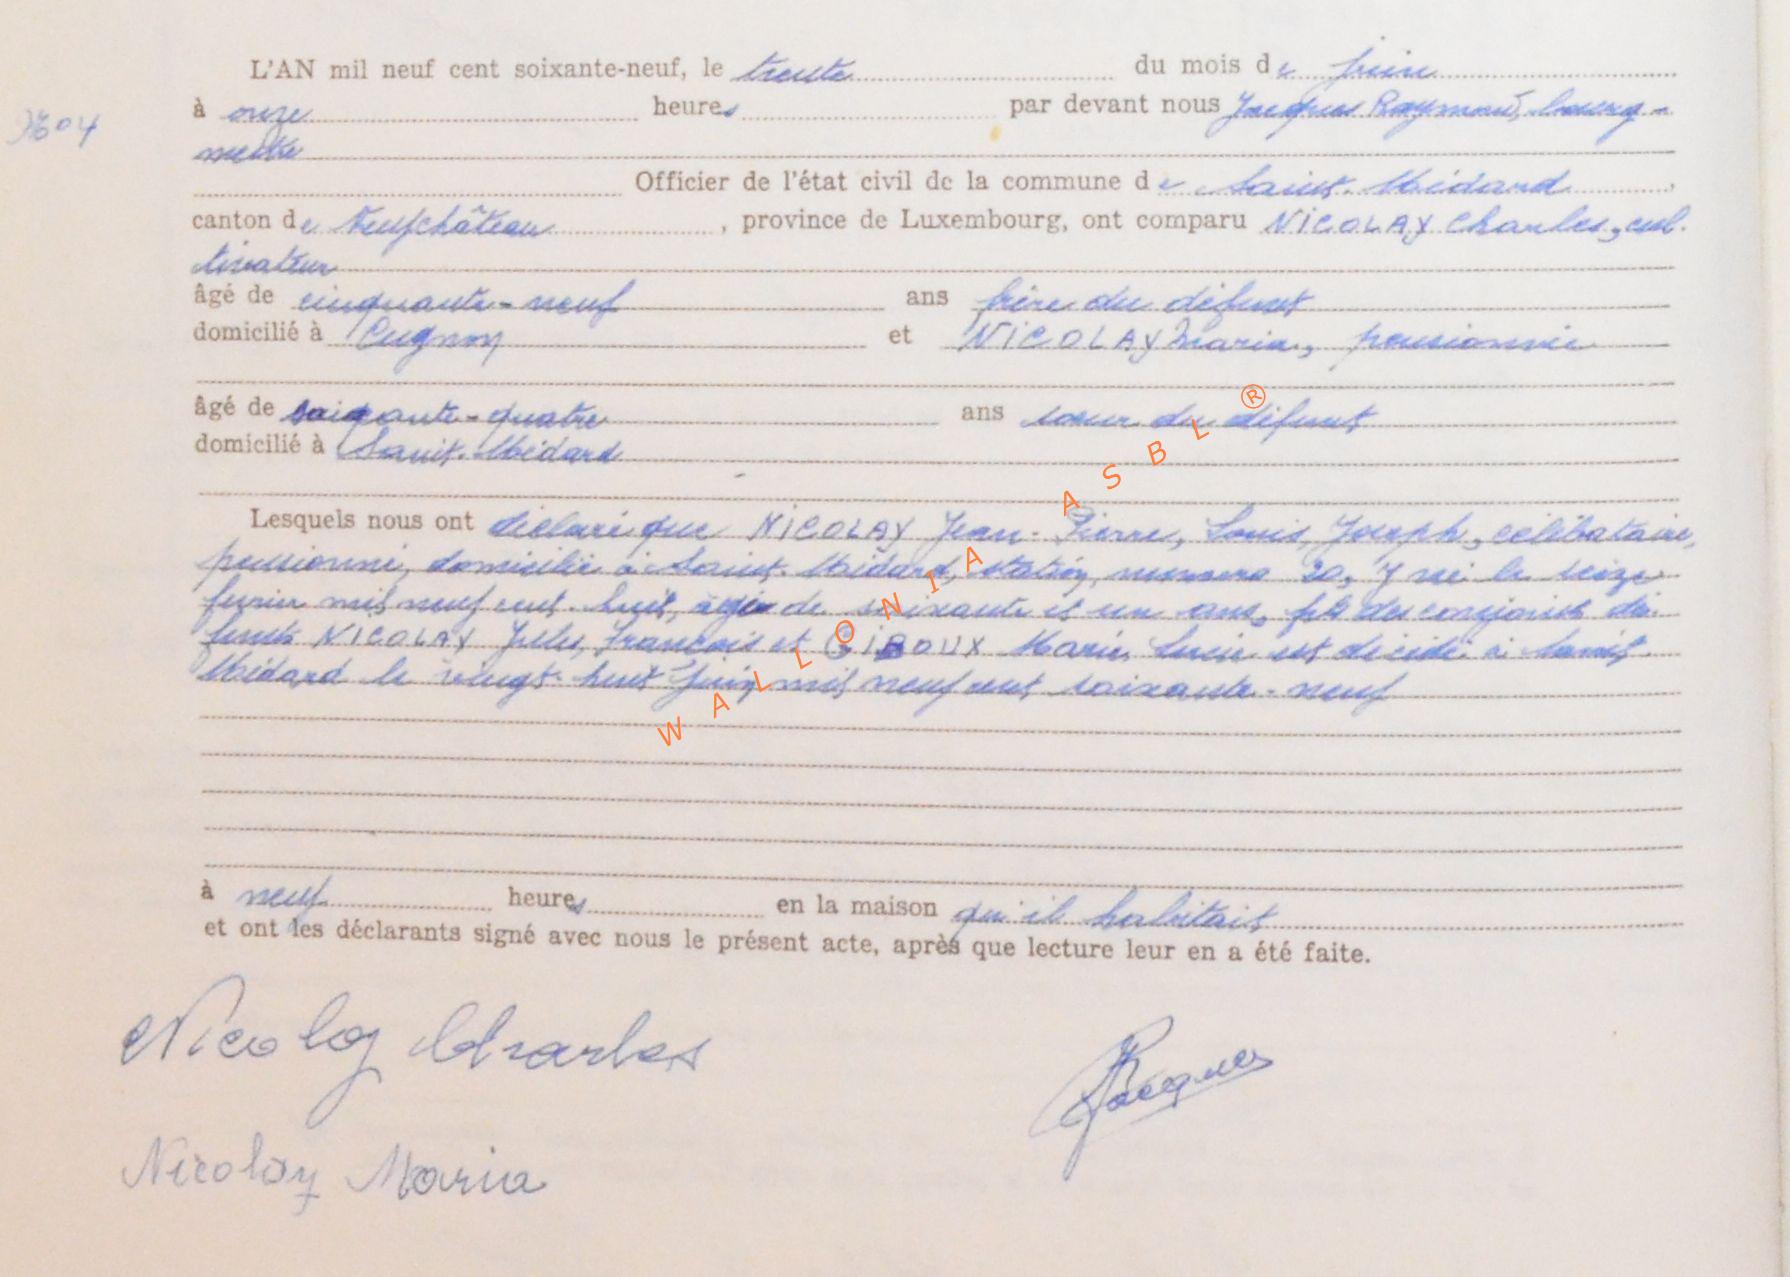 L'AN mil neuf cent soixante-neuf, le trente du mois de juin
à onze heures par devant nous Jacques Raymond, bourg-
mestre
Officier de l'état civil de la commune de Saint-Médard,
canton de Neufchâteau, province de Luxembourg, ont comparu NICOLAY Charles, cul-
tivateur
âgé de cinquante-neuf ans frère du défunt
domicilié à Cugnon et NICOLAY Maria, pensionnée
âgé de soixante-quatre ans soeur du défunt
domicilié à Saint-Médard
Lesquels nous ont déclaré que NICOLAY Jean-Pierre, Louis, Joseph, célibataire,
pensionné, domicilié à Saint-Médard, station, numéro 20, y né le seize
février mil neuf cent huit, âgé de soixante et un ans, fils des conjoints dé-
funts NICOLAY Jules, François et GIBOUX Marie, Lucie est décédé à Saint-
Médard le vingt-huit juin mil neuf cent soixante-neuf
à neuf heures en la maison qu'il habitait
et ont les déclarants signé avec nous le présent acte, après que lecture leur en a été faite.
Nicolay Charles
R Jacques
Nicolay Maria
WALLONIA ASBL ®